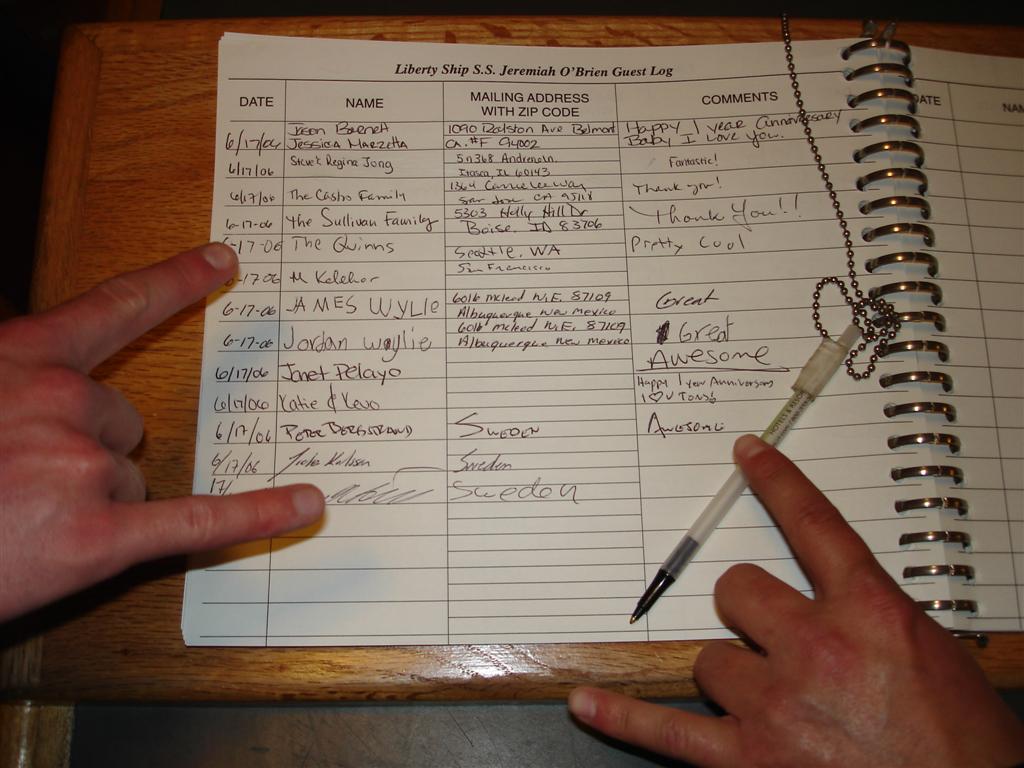 Liberty Ship S.S. Jeremiah O'Brien Guest Log
DATE NAME MAILING ADDRESS WITH ZIP CODE COMMENTS
6/17/06 Jason Barnett 1090 Ralston Ave Belmont Happy 1 year anniversary
Jessica Marzetta Ca. #F 94002 Baby I love you.
6/17/06 Steve & Regina Jong 5n368 Andrene Ln. Fantastic!
Itasca, IL 60143
6/17/06 The Castro Family 1364 Way Thank you!
San Jose CA 95118
6-17-06 The Sullivan Family 5303 Holly Hill Dr Thank You!!
Boise, ID 83706
6-17-06 The Quinns Seattle, WA Pretty Cool
6-17-06 M Kelehor San Francisco
6-17-06 JAMES WYLIE 6016 mcleod N.E. 87109 Great
Albuquerque New Mexico
6-17-06 Jordan waylie 6016 mcleod N.E. 87109 Great
Albuquerque New Mexico
6/17/06 Janet Pelayo AWESOME
6/17/06 Katie & Kevo Happy 1 year Anniversary
I ♡ U TONS!
6/17/06 PETER BERGSTRAND SWEDEN AWESOME
6/17/06 Karlsson Sweden
17/ Sweden
DATE NAM